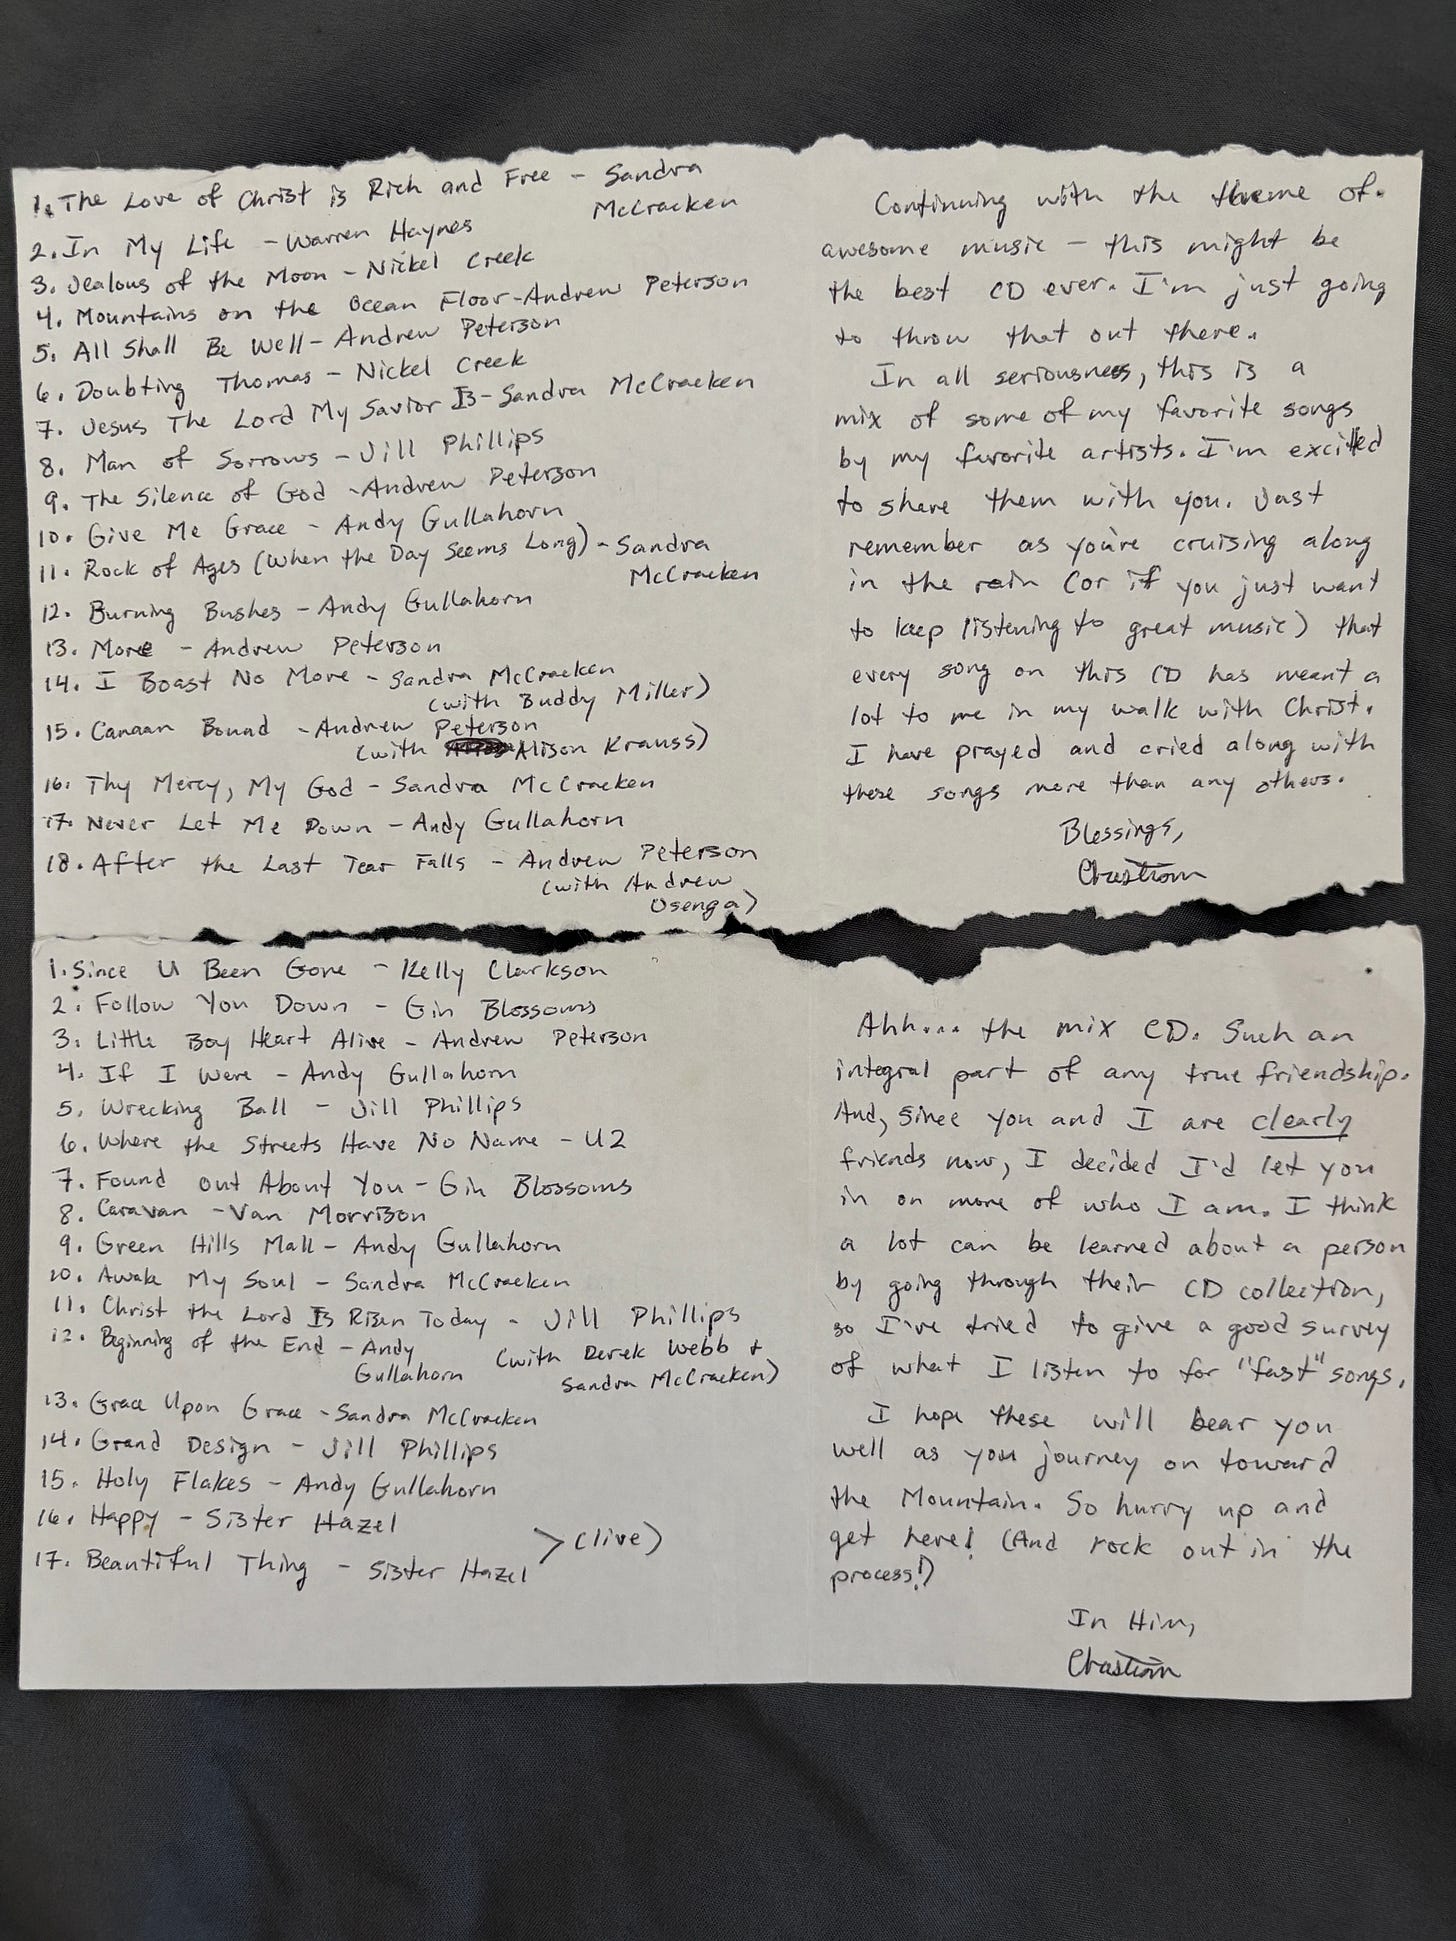 1. The Love of Christ is Rich and Free - Sandra
McCracken
2. In My Life - Warren Haynes
3. Jealous of the Moon - Nickel Creek
4. Mountains on the Ocean Floor - Andrew Peterson
5. All Shall Be Well - Andrew Peterson
6. Doubting Thomas - Nickel Creek
7. Jesus The Lord My Savior Is - Sandra McCracken
8. Man of Sorrows - Jill Phillips
9. The Silence of God - Andrew Peterson
10. Give Me Grace - Andy Gullahorn
11. Rock of Ages (When the Day Seems Long) - Sandra
McCracken
12. Burning Bushes - Andy Gullahorn
13. More - Andrew Peterson
14. I Boast No More - Sandra McCracken
(with Buddy Miller)
15. Canaan Bound - Andrew Peterson
(with Alison Krauss)
16. Thy Mercy, My God - Sandra McCracken
17. Never Let Me Down - Andy Gullahorn
18. After the Last Tear Falls - Andrew Peterson
(with Andrew
Osenga)
Continuing with the theme of
awesome music - this might be
the best CD ever. I'm just going
to throw that out there.
In all seriousness, this is a
mix of some of my favorite songs
by my favorite artists. I'm excited
to share them with you. Just
remember as you're cruising along
in the rain (or if you just want
to keep listening to great music) that
every song on this CD has meant a
lot to me in my walk with Christ.
I have prayed and cried along with
these songs more than any others.
Blessings,
1. Since U Been Gone - Kelly Clarkson
2. Follow You Down - Gin Blossoms
3. Little Boy Heart Alive - Andrew Peterson
4. If I Were - Andy Gullahorn
5. Wrecking Ball - Jill Phillips
6. Where the Streets Have No Name - U2
7. Found out About You - Gin Blossoms
8. Caravan - Van Morrison
9. Green Hills Mall - Andy Gullahorn
10. Awake My Soul - Sandra McCracken
11. Christ the Lord Is Risen Today - Jill Phillips
12. Beginning of the End - Andy
Gullahorn (with Derek Webb +
Sandra McCracken)
13. Grace Upon Grace - Sandra McCracken
14. Grand Design - Jill Phillips
15. Holy Flakes - Andy Gullahorn
16. Happy - Sister Hazel
17. Beautiful Thing - Sister Hazel > (live)
Ahh... the mix CD. Such an
integral part of any true friendship.
And, since you and I are clearly
friends now, I decided I'd let you
in on more of who I am. I think
a lot can be learned about a person
by going through their CD collection,
so I've tried to give a good survey
of what I listen to for "fast" songs.
I hope these will bear you
well as you journey on toward
the Mountain. So hurry up and
get here! (And rock out in the
process!)
In Him,